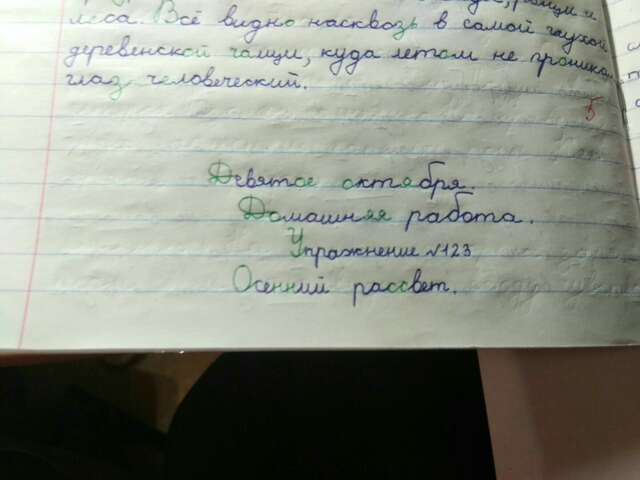 леса. Всё видно насквозь в самой глухой
деревенской чащи, куда летом не проникал
глаз человеческий.
5
Девятое октября.
Домашняя работа.
Упражнение №123
Осенний рассвет.